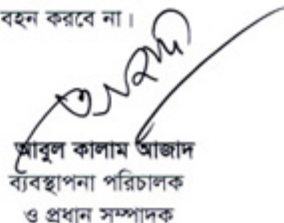 বহন করবে না।
আবুল কালাম আজাদ
ব্যবস্থাপনা পরিচালক
ও প্রধান সম্পাদক